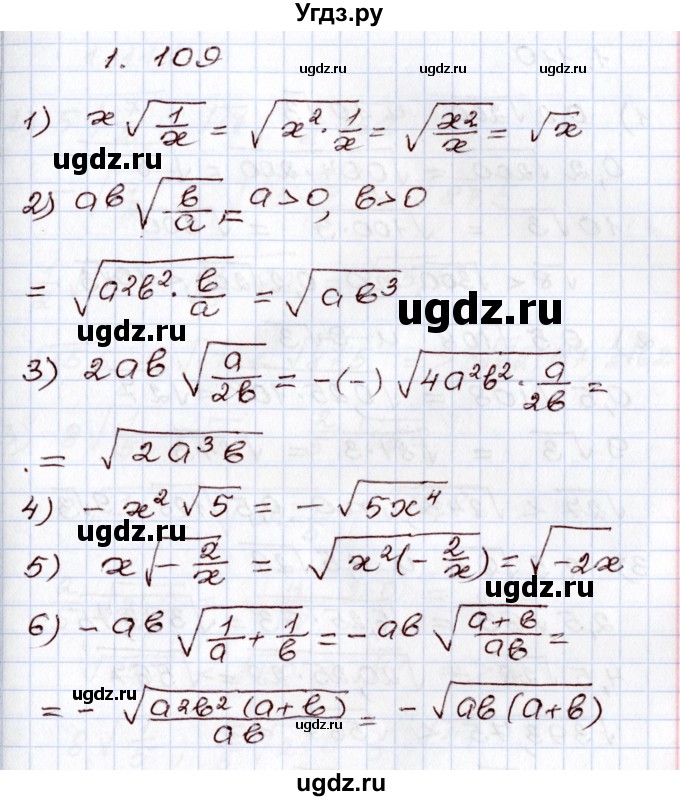 Угдз.ру
1. 109
ugdz.ru ugdz.ru
1) x√(1/x) = √(x² · 1/x) = √(x2/x) = √x
ugdz.ru ugdz.ru
2) ab√(b/a) = a>0, b>0
= √(a2b² · b/a) = √(ab³)
ugdz.ru ugdz.ru
3) 2ab√(a/2b) = -(-)√(4a²b² · a/2b) =
ugdz.ru ugdz.ru
= √(2a³b)
4) - x²√5 = -√(5x⁴)
ugdz.ru
5) x√(-2/x) = √(x²(-2/x)) = √(-2x)
ugdz.ru
6) -ab√(1/a + 1/b) = -ab√((a+b)/ab) =
ugdz.ru ugdz.ru
= -√(a2b²(a+b)/ab) = -√(ab(a+b))
ugdz.ru ugdz.ru
ugdz.ru